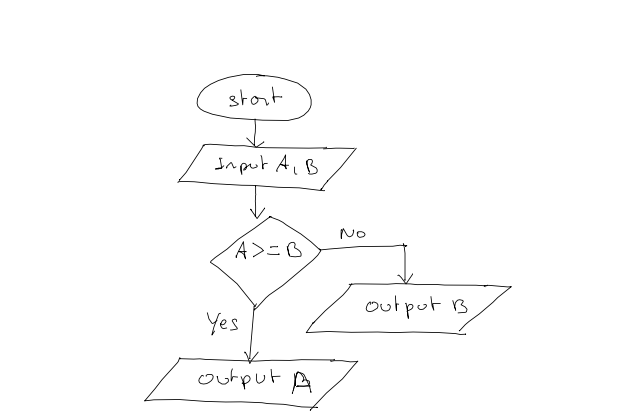 start
Input A, B
A>=B
No
output B
Yes
output